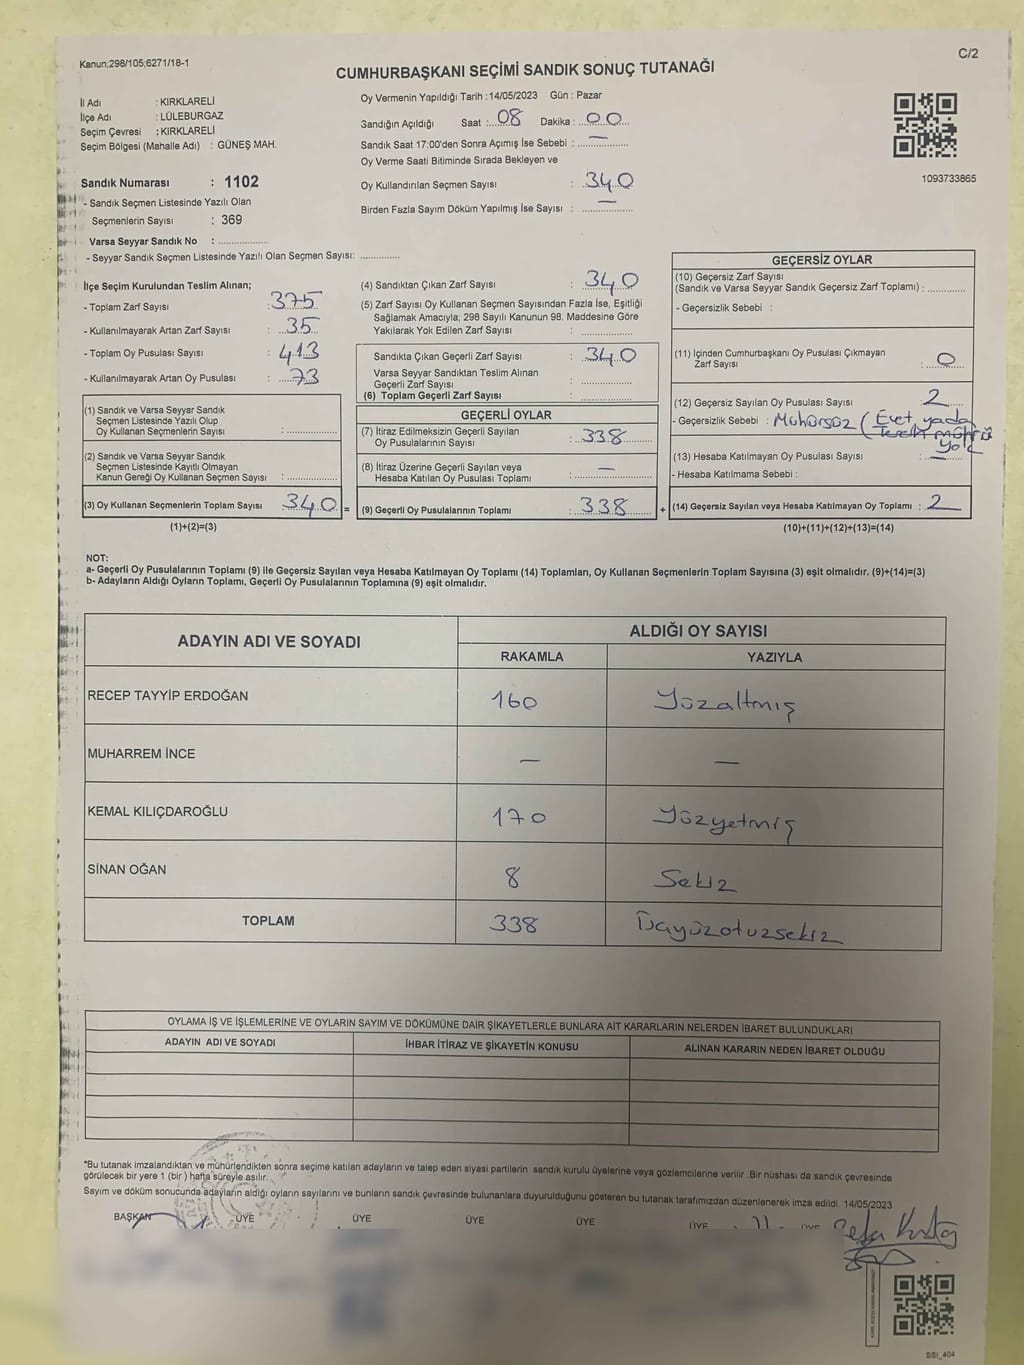 Kanun;298/105;6271/18-1
C/2
CUMHURBAŞKANI SEÇİMİ SANDIK SONUÇ TUTANAĞI
İl Adı : KIRKLARELİ
İlçe Adı : LÜLEBURGAZ
Seçim Çevresi : KIRKLARELİ
Seçim Bölgesi (Mahalle Adı) : GÜNEŞ MAH.
Sandık Numarası : 1102
- Sandık Seçmen Listesinde Yazılı Olan
Seçmenlerin Sayısı : 369
Varsa Seyyar Sandık No : ..................
- Seyyar Sandık Seçmen Listesinde Yazılı Olan Seçmen Sayısı: ..............
Oy Vermenin Yapıldığı Tarih : 14/05/2023 Gün : Pazar
Sandığın Açıldığı Saat : 08 Dakika : 00
Sandık Saat 17:00'den Sonra Açımış İse Sebebi : —
Oy Verme Saati Bitiminde Sırada Bekleyen ve
Oy Kullandırılan Seçmen Sayısı : 340
Birden Fazla Sayım Döküm Yapılmış İse Sayısı : —
1093733865
İlçe Seçim Kurulundan Teslim Alınan;
- Toplam Zarf Sayısı : 375
- Kullanılmayarak Artan Zarf Sayısı : 35
- Toplam Oy Pusulası Sayısı : 413
- Kullanılmayarak Artan Oy Pusulası : 73
(1) Sandık ve Varsa Seyyar Sandık
Seçmen Listesinde Yazılı Olup
Oy Kullanan Seçmenlerin Sayısı : ..............
(2) Sandık ve Varsa Seyyar Sandık
Seçmen Listesinde Kayıtlı Olmayan
Kanun Gereği Oy Kullanan Seçmen Sayısı : ..............
(3) Oy Kullanan Seçmenlerin Toplam Sayısı : 340 =
(1)+(2)=(3)
(4) Sandıktan Çıkan Zarf Sayısı : 340
(5) Zarf Sayısı Oy Kullanan Seçmen Sayısından Fazla İse, Eşitliği
Sağlamak Amacıyla; 298 Sayılı Kanunun 98. Maddesine Göre
Yakılarak Yok Edilen Zarf Sayısı : ..............
Sandıkta Çıkan Geçerli Zarf Sayısı : 340
Varsa Seyyar Sandıktan Teslim Alınan
Geçerli Zarf Sayısı : ..............
(6) Toplam Geçerli Zarf Sayısı : ..............
GEÇERLİ OYLAR
(7) İtiraz Edilmeksizin Geçerli Sayılan
Oy Pusulalarının Sayısı : 338
(8) İtiraz Üzerine Geçerli Sayılan veya
Hesaba Katılan Oy Pusulası Toplamı : —
(9) Geçerli Oy Pusulalarının Toplamı : 338 +
GEÇERSİZ OYLAR
(10) Geçersiz Zarf Sayısı
(Sandık ve Varsa Seyyar Sandık Geçersiz Zarf Toplamı) : ..............
- Geçersizlik Sebebi :
(11) İçinden Cumhurbaşkanı Oy Pusulası Çıkmayan
Zarf Sayısı : 0
(12) Geçersiz Sayılan Oy Pusulası Sayısı : 2
- Geçersizlik Sebebi : Mühürsüz (Evet yada
Tercih mührü
yok
(13) Hesaba Katılmayan Oy Pusulası Sayısı : —
- Hesaba Katılmama Sebebi :
(14) Geçersiz Sayılan veya Hesaba Katılmayan Oy Toplamı : 2
(10)+(11)+(12)+(13)=(14)
NOT:
a- Geçerli Oy Pusulalarının Toplamı (9) ile Geçersiz Sayılan veya Hesaba Katılmayan Oy Toplamı (14) Toplamları, Oy Kullanan Seçmenlerin Toplam Sayısına (3) eşit olmalıdır. (9)+(14)=(3)
b- Adayların Aldığı Oyların Toplamı, Geçerli Oy Pusulalarının Toplamına (9) eşit olmalıdır.
ADAYIN ADI VE SOYADI ALDIĞI OY SAYISI
RAKAMLA YAZIYLA
RECEP TAYYİP ERDOĞAN 160 Yüzaltmış
MUHARREM İNCE — —
KEMAL KILIÇDAROĞLU 170 Yüzyetmiş
SİNAN OĞAN 8 Sekiz
TOPLAM 338 Üçyüzotuzsekiz
OYLAMA İŞ VE İŞLEMLERİNE VE OYLARIN SAYIM VE DÖKÜMÜNE DAİR ŞİKAYETLERLE BUNLARA AİT KARARLARIN NELERDEN İBARET BULUNDUKLARI
ADAYIN ADI VE SOYADI İHBAR İTİRAZ VE ŞİKAYETİN KONUSU ALINAN KARARIN NEDEN İBARET OLDUĞU
*Bu tutanak imzalandıktan ve mühürlendikten sonra seçime katılan adayların ve talep eden siyasi partilerin sandık kurulu üyelerine veya gözlemcilerine verilir .Bir nüshası da sandık çevresinde
görülecek bir yere 1 (bir) hafta süreyle asılır.
Sayım ve döküm sonucunda adayların aldığı oyların sayılarını ve bunların sandık çevresinde bulunanlara duyurulduğunu gösteren bu tutanak tarafımızdan düzenlenerek imza edildi. 14/05/2023
BAŞKAN ÜYE ÜYE ÜYE ÜYE ÜYE ÜYE
SSI_404